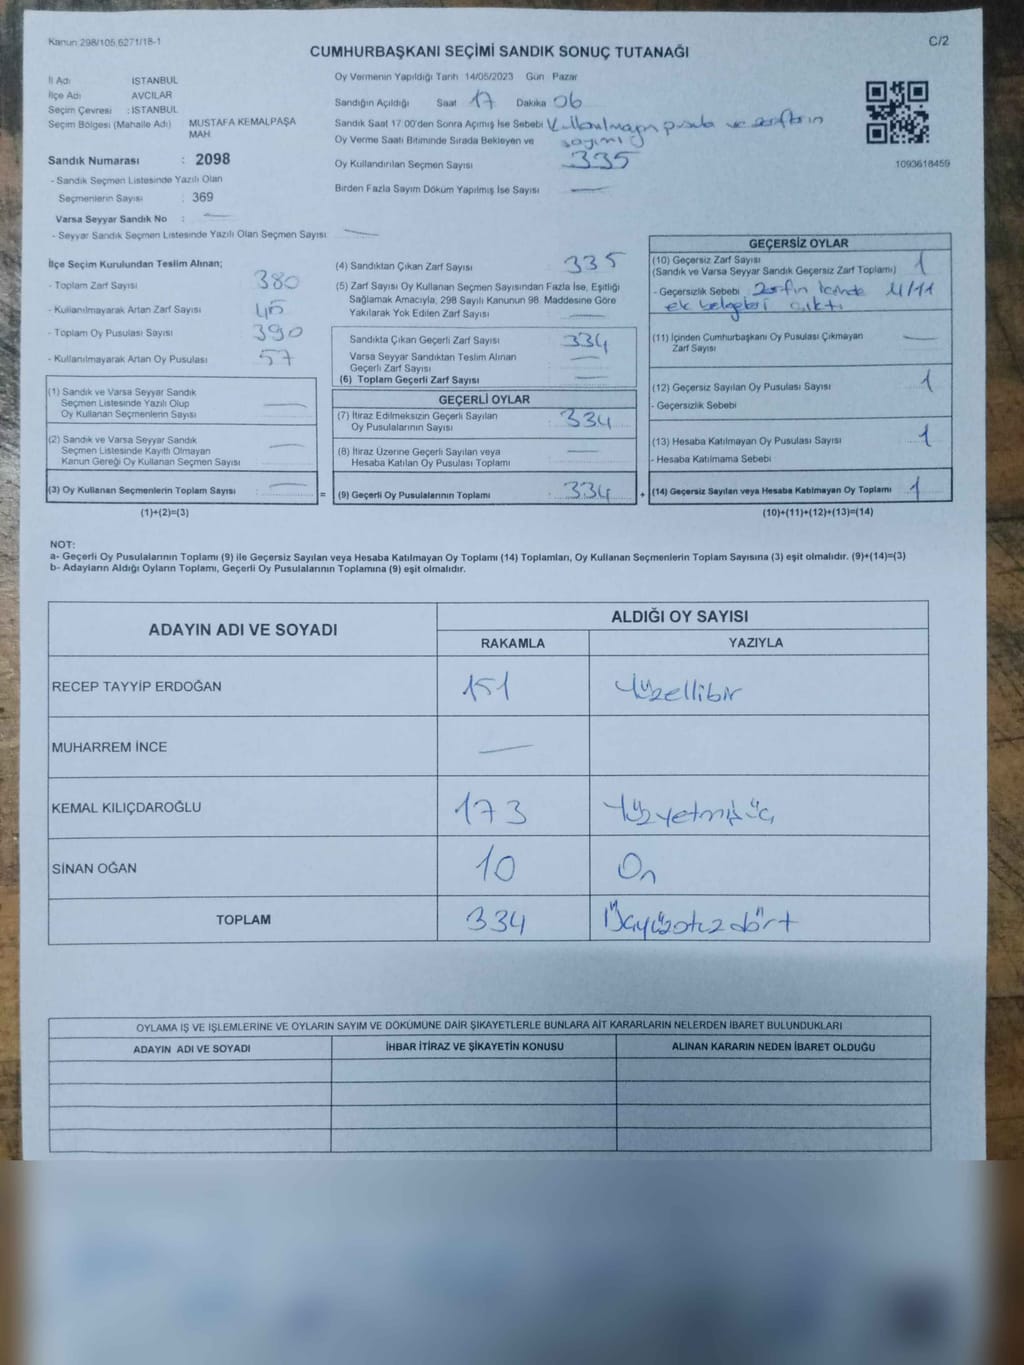 Kanun 298/105,6271/18-1
C/2
CUMHURBAŞKANI SEÇİMİ SANDIK SONUÇ TUTANAĞI
İl Adı : İSTANBUL
İlçe Adı : AVCILAR
Seçim Çevresi : İSTANBUL
Seçim Bölgesi (Mahalle Adı) : MUSTAFA KEMALPAŞA MAH.
Sandık Numarası : 2098
- Sandık Seçmen Listesinde Yazılı Olan
Seçmenlerin Sayısı : 369
Varsa Seyyar Sandık No : —
- Seyyar Sandık Seçmen Listesinde Yazılı Olan Seçmen Sayısı: —
Oy Vermenin Yapıldığı Tarih 14/05/2023 Gün Pazar
Sandığın Açıldığı Saat 17 Dakika 06
Sandık Saat 17:00'den Sonra Açılmış İse Sebebi Kullanılmayan pusula ve zarfların
Oy Verme Saati Bitiminde Sırada Bekleyen ve sayımı
Oy Kullandırılan Seçmen Sayısı 335
Birden Fazla Sayım Döküm Yapılmış İse Sayısı —
1093618459
İlçe Seçim Kurulundan Teslim Alınan;
- Toplam Zarf Sayısı 380
- Kullanılmayarak Artan Zarf Sayısı 45
- Toplam Oy Pusulası Sayısı 390
- Kullanılmayarak Artan Oy Pusulası 57
(1) Sandık ve Varsa Seyyar Sandık
Seçmen Listesinde Yazılı Olup
Oy Kullanan Seçmenlerin Sayısı —
(2) Sandık ve Varsa Seyyar Sandık
Seçmen Listesinde Kayıtlı Olmayan
Kanun Gereği Oy Kullanan Seçmen Sayısı —
(3) Oy Kullanan Seçmenlerin Toplam Sayısı : — =
(1)+(2)=(3)
(4) Sandıktan Çıkan Zarf Sayısı 335
(5) Zarf Sayısı Oy Kullanan Seçmen Sayısından Fazla İse, Eşitliği
Sağlamak Amacıyla, 298 Sayılı Kanunun 98. Maddesine Göre
Yakılarak Yok Edilen Zarf Sayısı —
Sandıkta Çıkan Geçerli Zarf Sayısı 334
Varsa Seyyar Sandıktan Teslim Alınan
Geçerli Zarf Sayısı —
(6) Toplam Geçerli Zarf Sayısı —
GEÇERLİ OYLAR
(7) İtiraz Edilmeksizin Geçerli Sayılan
Oy Pusulalarının Sayısı : 334
(8) İtiraz Üzerine Geçerli Sayılan veya
Hesaba Katılan Oy Pusulası Toplamı —
(9) Geçerli Oy Pusulalarının Toplamı : 334 +
GEÇERSİZ OYLAR
(10) Geçersiz Zarf Sayısı
(Sandık ve Varsa Seyyar Sandık Geçersiz Zarf Toplamı) 1
- Geçersizlik Sebebi zarfın içinde
ek belgeleri çıktı
(11) İçinden Cumhurbaşkanı Oy Pusulası Çıkmayan
Zarf Sayısı —
(12) Geçersiz Sayılan Oy Pusulası Sayısı 1
- Geçersizlik Sebebi
(13) Hesaba Katılmayan Oy Pusulası Sayısı 1
- Hesaba Katılmama Sebebi
(14) Geçersiz Sayılan veya Hesaba Katılmayan Oy Toplamı 1
(10)+(11)+(12)+(13)=(14)
NOT:
a- Geçerli Oy Pusulalarının Toplamı (9) ile Geçersiz Sayılan veya Hesaba Katılmayan Oy Toplamı (14) Toplamları, Oy Kullanan Seçmenlerin Toplam Sayısına (3) eşit olmalıdır. (9)+(14)=(3)
b- Adayların Aldığı Oyların Toplamı, Geçerli Oy Pusulalarının Toplamına (9) eşit olmalıdır.
ADAYIN ADI VE SOYADI
ALDIĞI OY SAYISI
RAKAMLA YAZIYLA
RECEP TAYYİP ERDOĞAN 151 Yüzellibir
MUHARREM İNCE —
KEMAL KILIÇDAROĞLU 173 Yüzyetmişüç
SİNAN OĞAN 10 On
TOPLAM 334 Üçyüzotuzdört
OYLAMA İŞ VE İŞLEMLERİNE VE OYLARIN SAYIM VE DÖKÜMÜNE DAİR ŞİKAYETLERLE BUNLARA AİT KARARLARIN NELERDEN İBARET BULUNDUKLARI
ADAYIN ADI VE SOYADI İHBAR İTİRAZ VE ŞİKAYETİN KONUSU ALINAN KARARIN NEDEN İBARET OLDUĞU